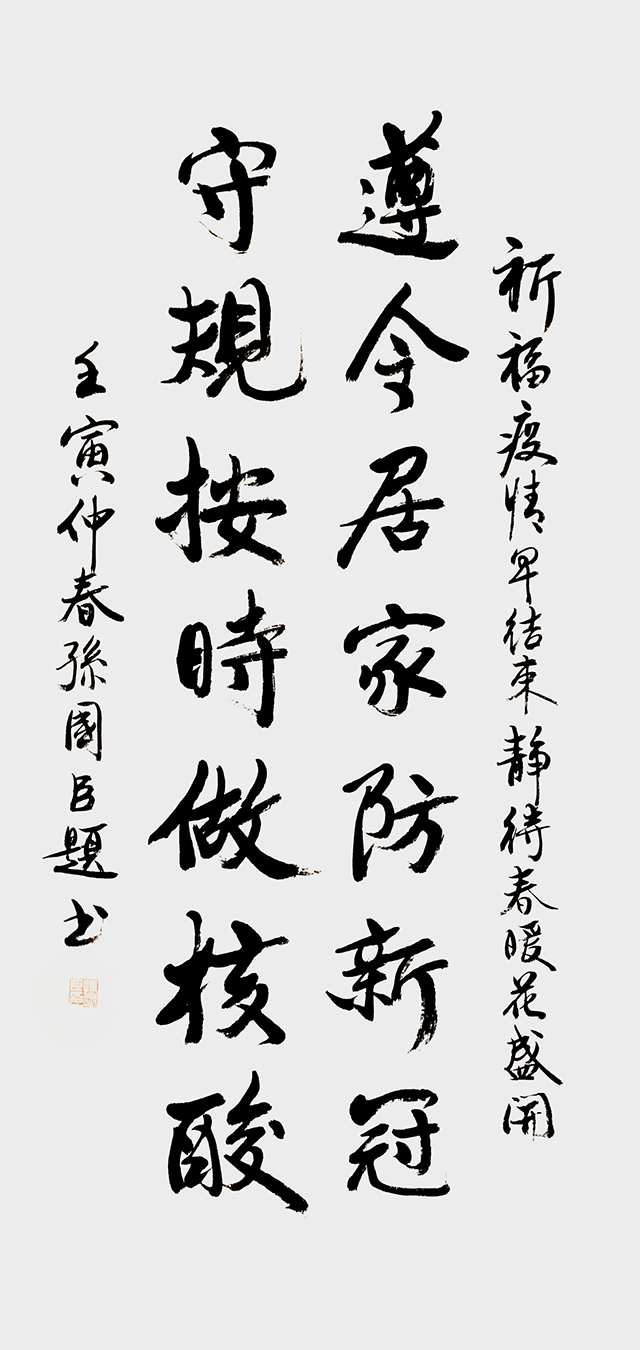 祈福疫情早结束静待春暖花盛開
遵令居家防新冠
守規按時做核酸
壬寅仲春孫國臣題书